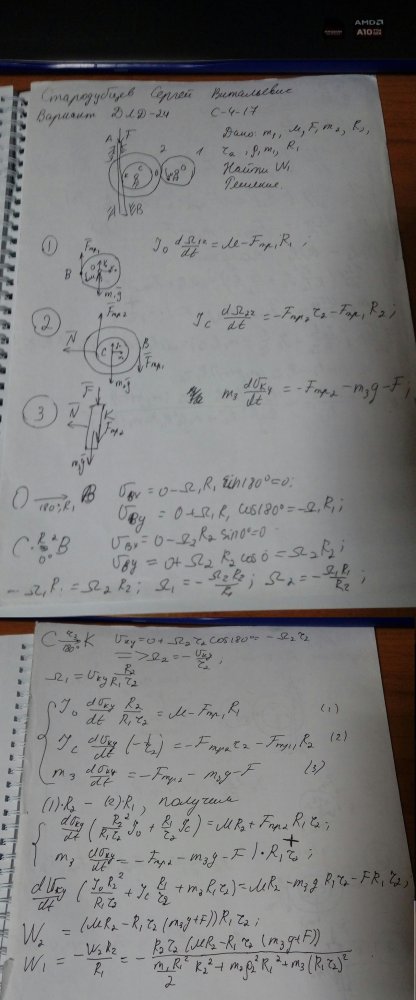 AMD
A10
Стародубцев Сергей Витальевич
Вариант Д1Д-24 С-4-17
Дано: m₁, M, F, m₂, R₂,
r₂, g, m₃, R₁
Найти W₁
Решение.
A F
2 1
B
① F̄тр₁
B O
m₁ḡ
J₀ dΩ₁z/dt = M - Fтр₁R₁ ;
② F̄тр₂
N̄ C B F̄тр₁
m₂ḡ
J_C dΩ₂z/dt = -Fтр₂ r₂ - Fтр₁ R₂ ;
③ F̄
N̄ K F̄тр₂
m₃ḡ
m₃ dσ_Ky/dt = -Fтр₂ - m₃g - F ;
O → 180°, R₁ B σ_Bx = 0 - Ω₁R₁ sin180° = 0;
σ_By = 0 + Ω₁R₁ cos180° = -Ω₁R₁ ;
C → R₂ 0° B σ_Bx = 0 - Ω₂R₂ sin0° = 0
σ_By = 0 + Ω₂ R₂ cos0 = Ω₂R₂ ;
-Ω₁R₁ = Ω₂R₂ ; Ω₁ = -Ω₂R₂/R₁ ; Ω₂ = -Ω₁R₁/R₂ ;
C → r₂ 180° K σ_Ky = 0 + Ω₂r₂ cos180° = -Ω₂r₂
=> Ω₂ = -σ_Ky/r₂ ;
Ω₁ = σ_Ky R₂/R₁r₂
J₀ dσ_Ky/dt R₂/R₁r₂ = M - Fтр₁R₁ (1)
J_C dσ_Ky/dt (-1/r₂) = -Fтр₂r₂ - Fтр₁R₂ (2)
m₃ dσ_Ky/dt = -Fтр₂ - m₃g - F (3)
(1)·R₂ - (2)·R₁, получим
dσ_Ky/dt (R₂²/R₁r₂ J₀ + R₁/r₂ J_C) = MR₂ + Fтр₂ R₁r₂ ;
+
m₃ dσ_Ky/dt = -Fтр₂ - m₃g - F) · R₁r₂ ;
dσ_Ky/dt (J₀R₂²/R₁r₂ + J_C R₁/r₂ + m₃R₁r₂) = MR₂ - m₃g R₁r₂ - FR₁r₂ ;
W₂ = (MR₂ - R₁r₂ (m₃g+F)) R₁r₂ ;
W₁ = -W₂R₂/R₁ = - R₂r₂ (MR₂ - R₁r₂ (m₃g+F)) / m₁R₁²/2 R₂² + m₂ρ₂²R₁² + m₃(R₁r₂)²